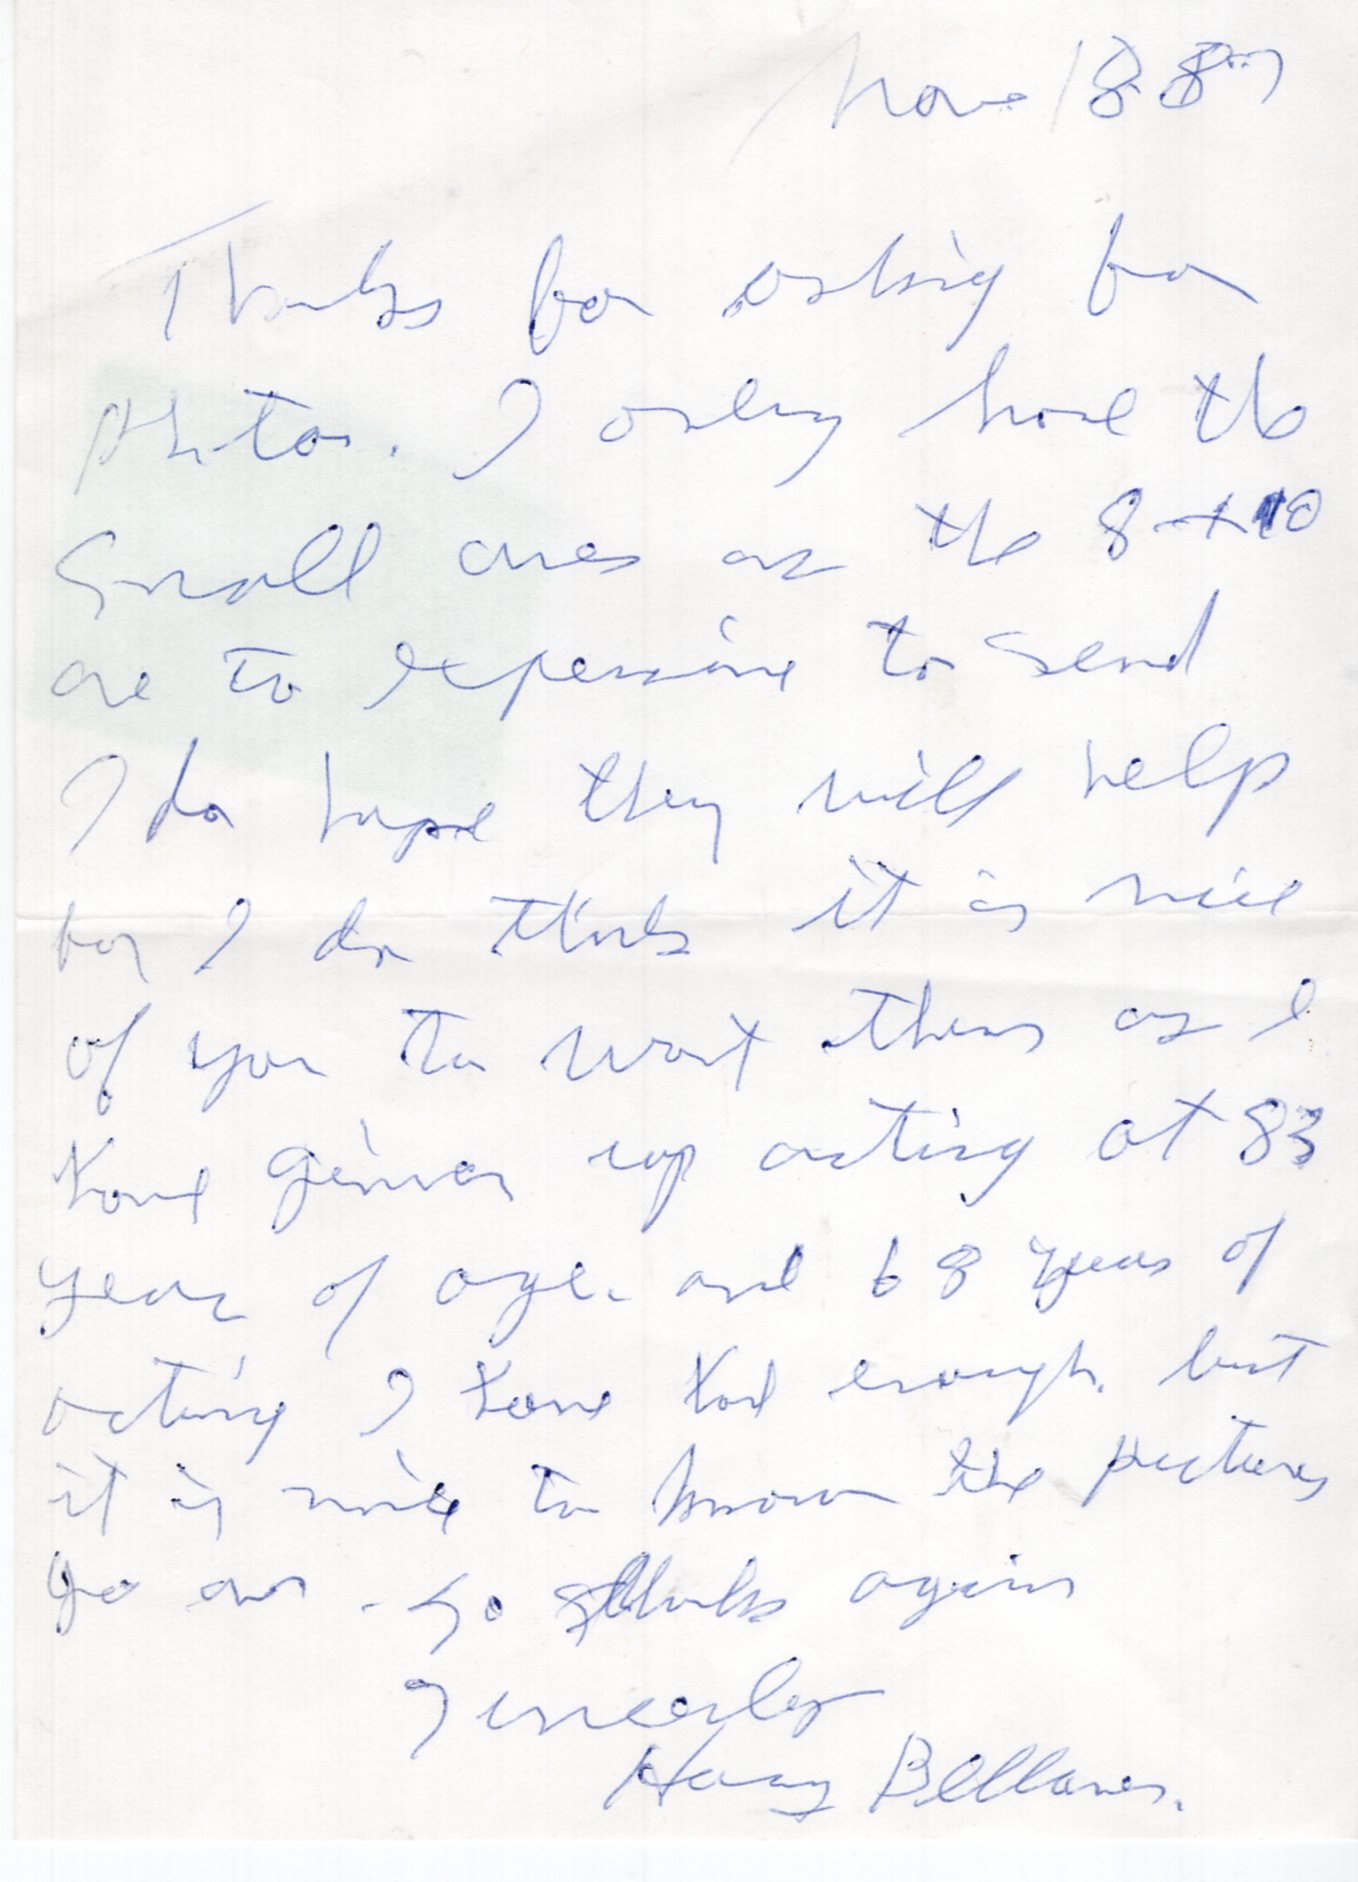 Nov 18 87
Thanks for asking for
photos. I only have the
Small ones as the 8 x 10
are to expensive to send
I do hope they will help
for I do think it is nice
of you to want them as I
have given up acting at 83
years of age. and 68 years of
acting I have had enough. but
it is nice to know the pictures
go on. So thanks again
Sincerely
Harry Bellaver.